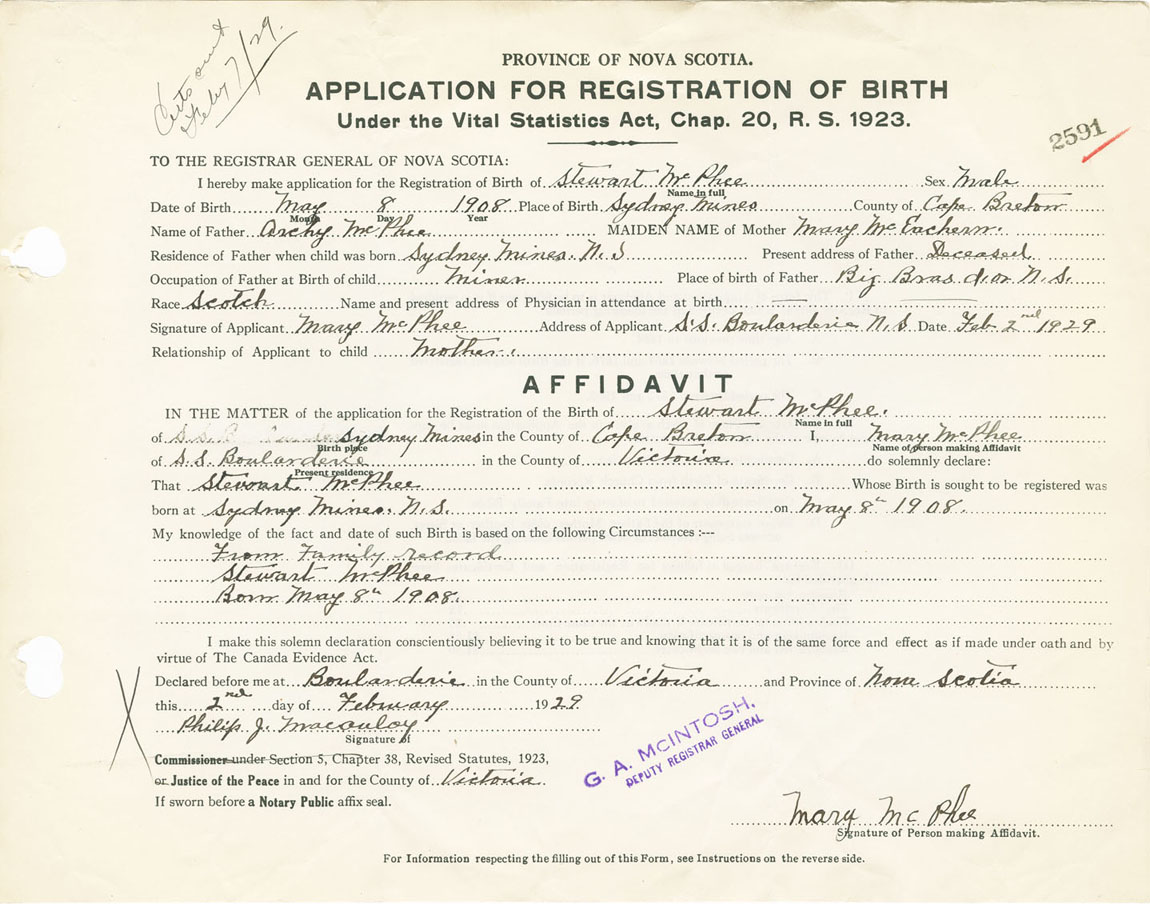 Certs out
Feby 7/29.
PROVINCE OF NOVA SCOTIA.
APPLICATION FOR REGISTRATION OF BIRTH
Under the Vital Statistics Act, Chap. 20, R. S. 1923.
2591
TO THE REGISTRAR GENERAL OF NOVA SCOTIA:
I hereby make application for the Registration of Birth of Stewart McPhee Sex Male
Name in full
Date of Birth May 8 1908 Place of Birth Sydney Mines County of Cape Breton
Month Day Year
Name of Father Archy McPhee MAIDEN NAME of Mother Mary McEachern.
Residence of Father when child was born Sydney Mines. N. S Present address of Father Deceased
Occupation of Father at Birth of child Miner Place of birth of Father Big Bras d. or N. S.
Race Scotch Name and present address of Physician in attendance at birth —— ——
Signature of Applicant Mary McPhee Address of Applicant S. S. Boularderie N. S Date Feb 2nd 1929
Relationship of Applicant to child Mother.
AFFIDAVIT
IN THE MATTER of the application for the Registration of the Birth of Stewart McPhee.
Name in full
of S. S. Sydney Mines in the County of Cape Breton I, Mary McPhee
Birth place Name of person making Affidavit
of S. S. Boularderie in the County of Victoria do solemnly declare:
Present residence
That Stewart McPhee Whose Birth is sought to be registered was
born at Sydney Mines. N. S. on May 8th 1908.
My knowledge of the fact and date of such Birth is based on the following Circumstances :---
From Family record
Stewart McPhee
Born May 8th 1908.
I make this solemn declaration conscientiously believing it to be true and knowing that it is of the same force and effect as if made under oath and by
virtue of The Canada Evidence Act.
Declared before me at Boularderie in the County of Victoria and Province of Nova Scotia
this 2nd day of February 1929
Philip J. Macaulay
Signature of
Commissioner under Section 5, Chapter 38, Revised Statutes, 1923,
or Justice of the Peace in and for the County of Victoria.
If sworn before a Notary Public affix seal.
G. A. McINTOSH,
DEPUTY REGISTRAR GENERAL
Mary McPhee
Signature of Person making Affidavit.
For Information respecting the filling out of this Form, see Instructions on the reverse side.